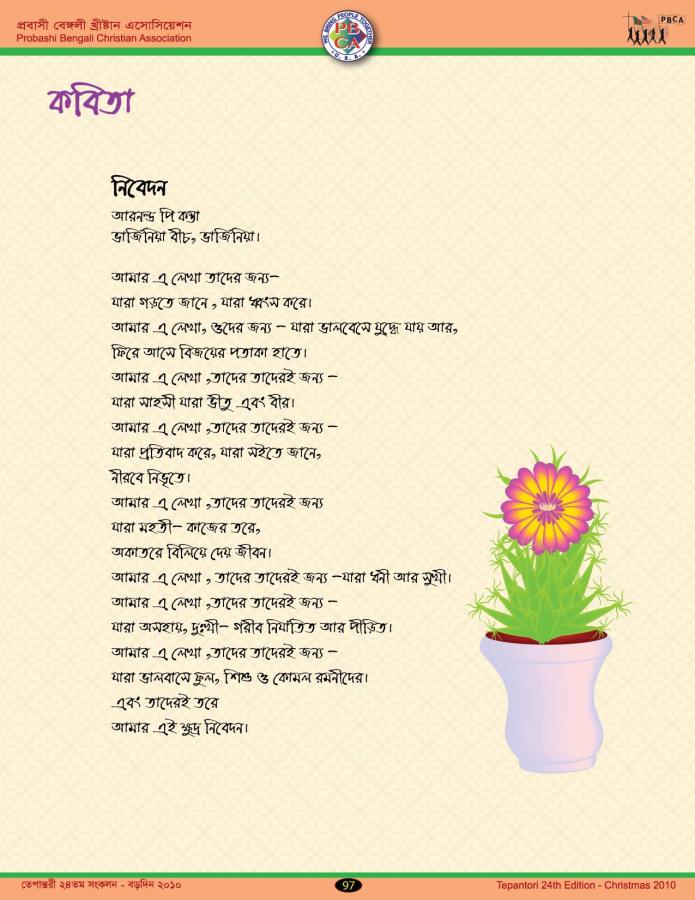 প্রবাসী বেঙ্গলী খ্রীষ্টান এসোসিয়েশন
Probashi Bengali Christian Association
WE BRING PEOPLE TOGETHER
PB
CA
U.S.A.
PBCA
কবিতা
নিবেদন
আরনল্ড পি কস্তা
ভার্জিনিয়া বীচ, ভার্জিনিয়া।
আমার এ লেখা তাদের জন্য–
যারা গড়তে জানে , যারা ধ্বংস করে।
আমার এ লেখা, ওদের জন্য – যারা ভালবেসে যুদ্ধে যায় আর,
ফিরে আসে বিজয়ের পতাকা হাতে।
আমার এ লেখা ,তাদের তাদেরই জন্য –
যারা সাহসী যারা ভীতু এবং বীর।
আমার এ লেখা ,তাদের তাদেরই জন্য –
যারা প্রতিবাদ করে, যারা সইতে জানে,
নীরবে নিভৃতে।
আমার এ লেখা ,তাদের তাদেরই জন্য
যারা মহতী– কাজের তরে,
অকাতরে বিলিয়ে দেয় জীবন।
আমার এ লেখা , তাদের তাদেরই জন্য –যারা ধনী আর সুখী।
আমার এ লেখা ,তাদের তাদেরই জন্য –
যারা অসহায়, দুঃখী– গরীব নির্যাতিত আর পীড়িত।
আমার এ লেখা ,তাদের তাদেরই জন্য –
যারা ভালবাসে ফুল, শিশু ও কোমল রমনীদের।
এবং তাদেরই তরে
আমার এই ক্ষুদ্র নিবেদন।
তেপান্তরী ২৪তম সংকলন - বড়দিন ২০১০
97
Tepantori 24th Edition - Christmas 2010